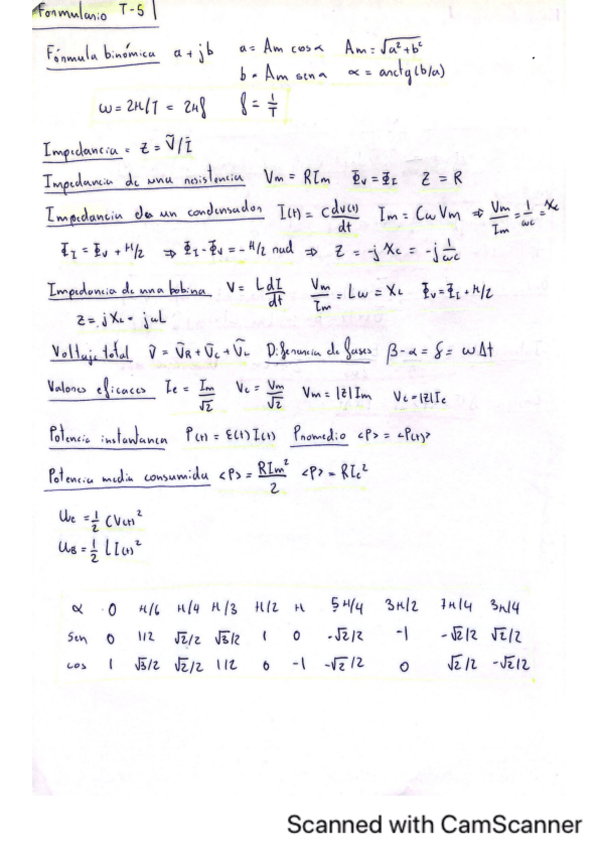 Formulario T-5
Fórmula binómica a + jb a = Am cosα Am = √a²+b²
b = Am senα α = arctg(b/a)
ω = 2π/T = 2πf f = 1/T
Impedancia = Z = Ṽ/Ĩ
Impedancia de una resistencia Vm = RIm Φv = ΦI Z = R
Impedancia de un condensador I(t) = C dV(t)/dt Im = CωVm ⇒ Vm/Im = 1/ωC = Xc
ΦI = Φv + π/2 ⇒ ΦI - Φv = -π/2 rad ⇒ Z = -jXc = -j 1/ωC
Impedancia de una bobina V = L dI/dt Vm/Im = Lω = XL Φv = ΦI + π/2
Z = jXL = jωL
Voltaje total Ṽ = ṼR + ṼC + ṼL Diferencia de fases β - α = δ = ωΔt
Valores eficaces Ie = Im/√2 Ve = Vm/√2 Vm = |Z|Im Ve = |Z|Ie
Potencia instantanea P(t) = ε(t)I(t) Promedio <P> = <P(t)>
Potencia media consumida <P> = RIm²/2 <P> = RIe²
UE = 1/2 CV(t)²
UB = 1/2 LI(t)²
α 0 π/6 π/4 π/3 π/2 π 5π/4 3π/2 7π/4 3π/4
Sen 0 1/2 √2/2 √3/2 1 0 -√2/2 -1 -√2/2 √2/2
cos 1 √3/2 √2/2 1/2 0 -1 -√2/2 0 √2/2 -√2/2
Scanned with CamScanner